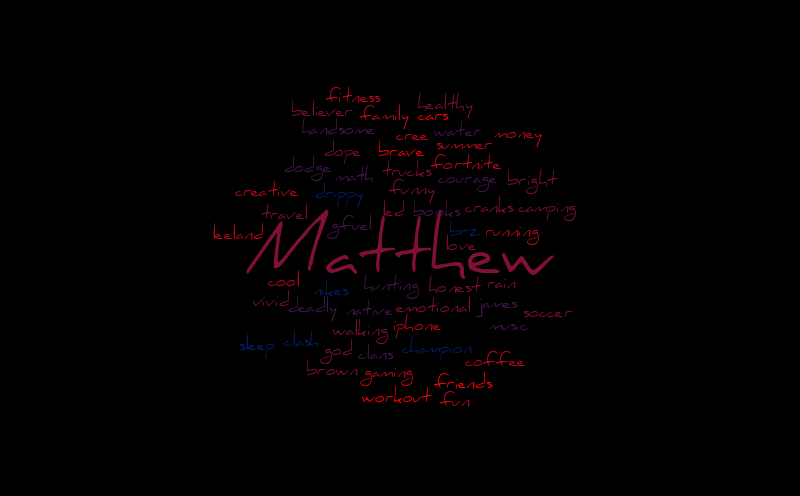 fitness
believer family cars healthy
handsome cree water money
dope brave summer
dodge math trucks fortnite
creative drippy funny courage bright
travel gfuel led books cranks camping
leeland Matthew brz running
love
cool nikes hunting honest rain
vivid deadly native emotional james soccer
walking iphone music
sleep clash god clans champion
brown gaming coffee
workout friends
fun